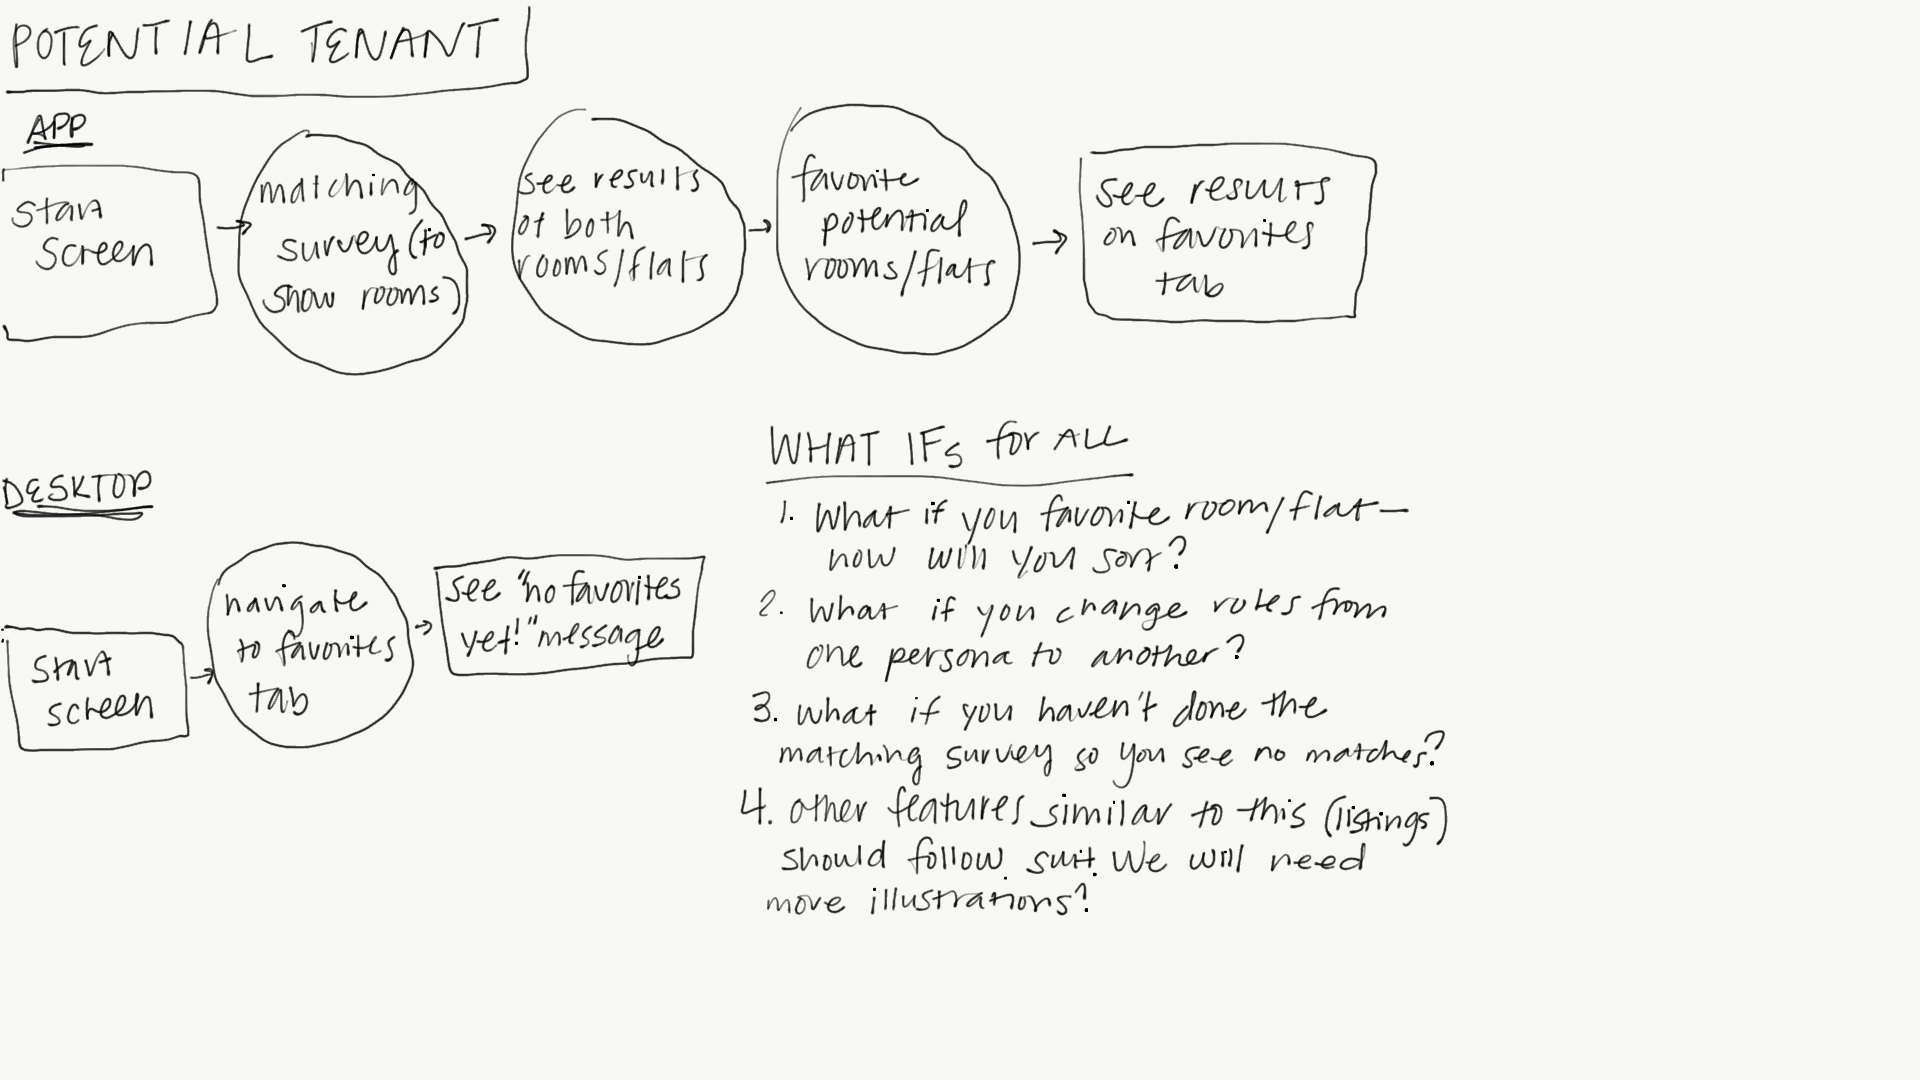 POTENTIAL TENANT
APP
start
screen
matching
survey (to
show rooms)
see results
of both
rooms/flats
favorite
potential
rooms/flats
see results
on favorites
tab
DESKTOP
start
screen
navigate
to favorites
tab
see "no favorites
yet!" message
WHAT IFs for ALL
1. What if you favorite room/flat—
how will you sort?
2. What if you change roles from
one persona to another?
3. What if you haven't done the
matching survey so you see no matches?
4. other features similar to this (listings)
should follow suit. We will need
more illustrations?